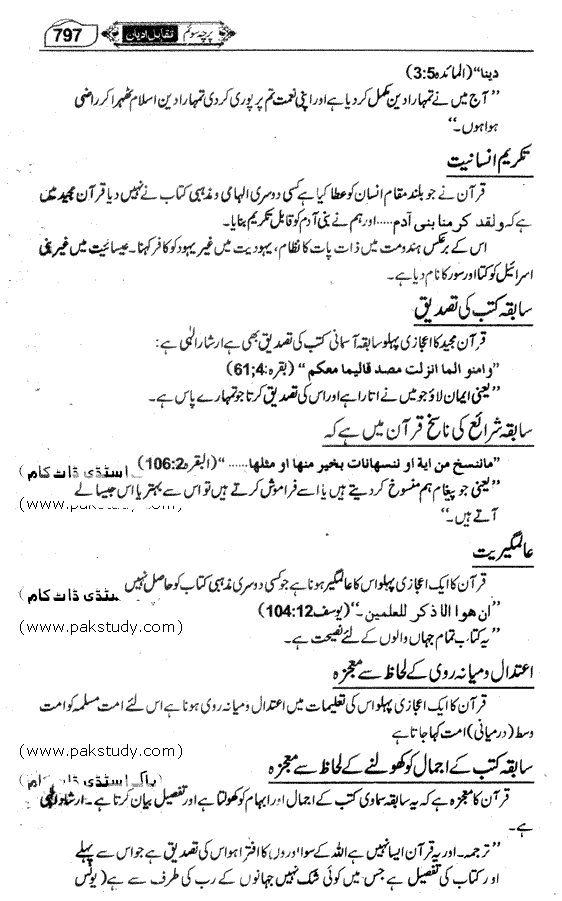 797 تقابل ادیان پرچہ سوئم
دینا“ (المائدہ 3:5)
”آج میں نے تمہارا دین مکمل کر دیا ہے اور اپنی نعمت تم پر پوری کر دی تمہارا دین اسلام ٹھہرا کر راضی
ہوا ہوں۔“
تکریم انسانیت
قرآن نے جو بلند مقام انسان کو عطا کیا ہے کسی دوسری الہامی و مذہبی کتاب نے نہیں دیا قرآن مجید میں
ہے کہ ولقد کرمنا بنی آدم.....اور ہم نے بنی آدم کو قابل تکریم بنایا۔
اس کے برعکس ہندومت میں ذات پات کا نظام، یہودیت میں غیر یہود کو کافر کہنا۔ عیسائیت میں غیر بنی
اسرائیل کو کتا اور سور کا نام دیا ہے۔
سابقہ کتب کی تصدیق
قرآن مجید کا اعجازی پہلو سابقہ آسمانی کتب کی تصدیق بھی ہے ارشاد الٰہی ہے:
”وامنو الما انزلت مصد قالیما معکم“ (بقرہ: 61;4)
”یعنی ایمان لاؤ جو میں نے اتارا ہے اور اس کی تصدیق کرتا جو تمہارے پاس ہے۔
سابقہ شرائع کی ناسخ قرآن میں ہے کہ
”ماننسخ من ایة او ننسهانات بخیر منها او مثلها......“ (البقرہ 106:2)
اسٹڈی ڈاٹ کام)
”یعنی جو پیغام ہم منسوخ کر دیتے ہیں یا اسے فراموش کرتے ہیں تو اس سے بہتر یا اس جیسا لے
(www.pakstudy.com)
آتے ہیں۔“
عالمگیریت
قرآن کا ایک اعجازی پہلو اس کا عالمگیر ہونا ہے جو کسی دوسری مذہبی کتاب کو حاصل نہیں
اسٹڈی ڈاٹ کام)
”ان هوا الا ذکر للعلمین۔“ (یوسف 104:12)
(www.pakstudy.com)
”یہ کتاب تمام جہاں والوں کے لئے نصیحت ہے۔
اعتدال و میانہ روی کے لحاظ سے معجزہ
قرآن کا ایک اعجازی پہلو اس کی تعلیمات میں اعتدال و میانہ روی ہونا ہے اس لئے امت مسلمہ کو امت
وسط (درمیانی) امت کہا جاتا ہے
(www.pakstudy.com)
سابقہ کتب کے اجمال کو کھولنے کے لحاظ سے معجزہ
پاک اسٹڈی ڈاٹ کام)
قرآن کا معجزہ ہے کہ یہ سابقہ سماوی کتب کے اجمال اور ابہام کو کھولتا ہے اور تفصیل بیان کرتا ہے۔ ارشاد الٰہی
ہے۔
”ترجمہ۔ اور یہ قرآن ایسا نہیں ہے اللہ کے سوا اوروں کا افتراء ہو اس کی تصدیق ہے جو اس سے پہلے
اور کتاب کی تفصیل ہے جس میں کوئی شک نہیں جہانوں کے رب کی طرف سے ہے (یونس